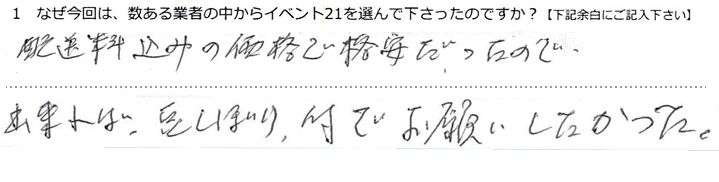 1 なぜ今回は、数ある業者の中からイベント21を選んで下さったのですか？【下記余白にご記入下さい】
配送料込みの価格で格安だったので、
出来れば、豆しぼり、付でお願いしたかった。